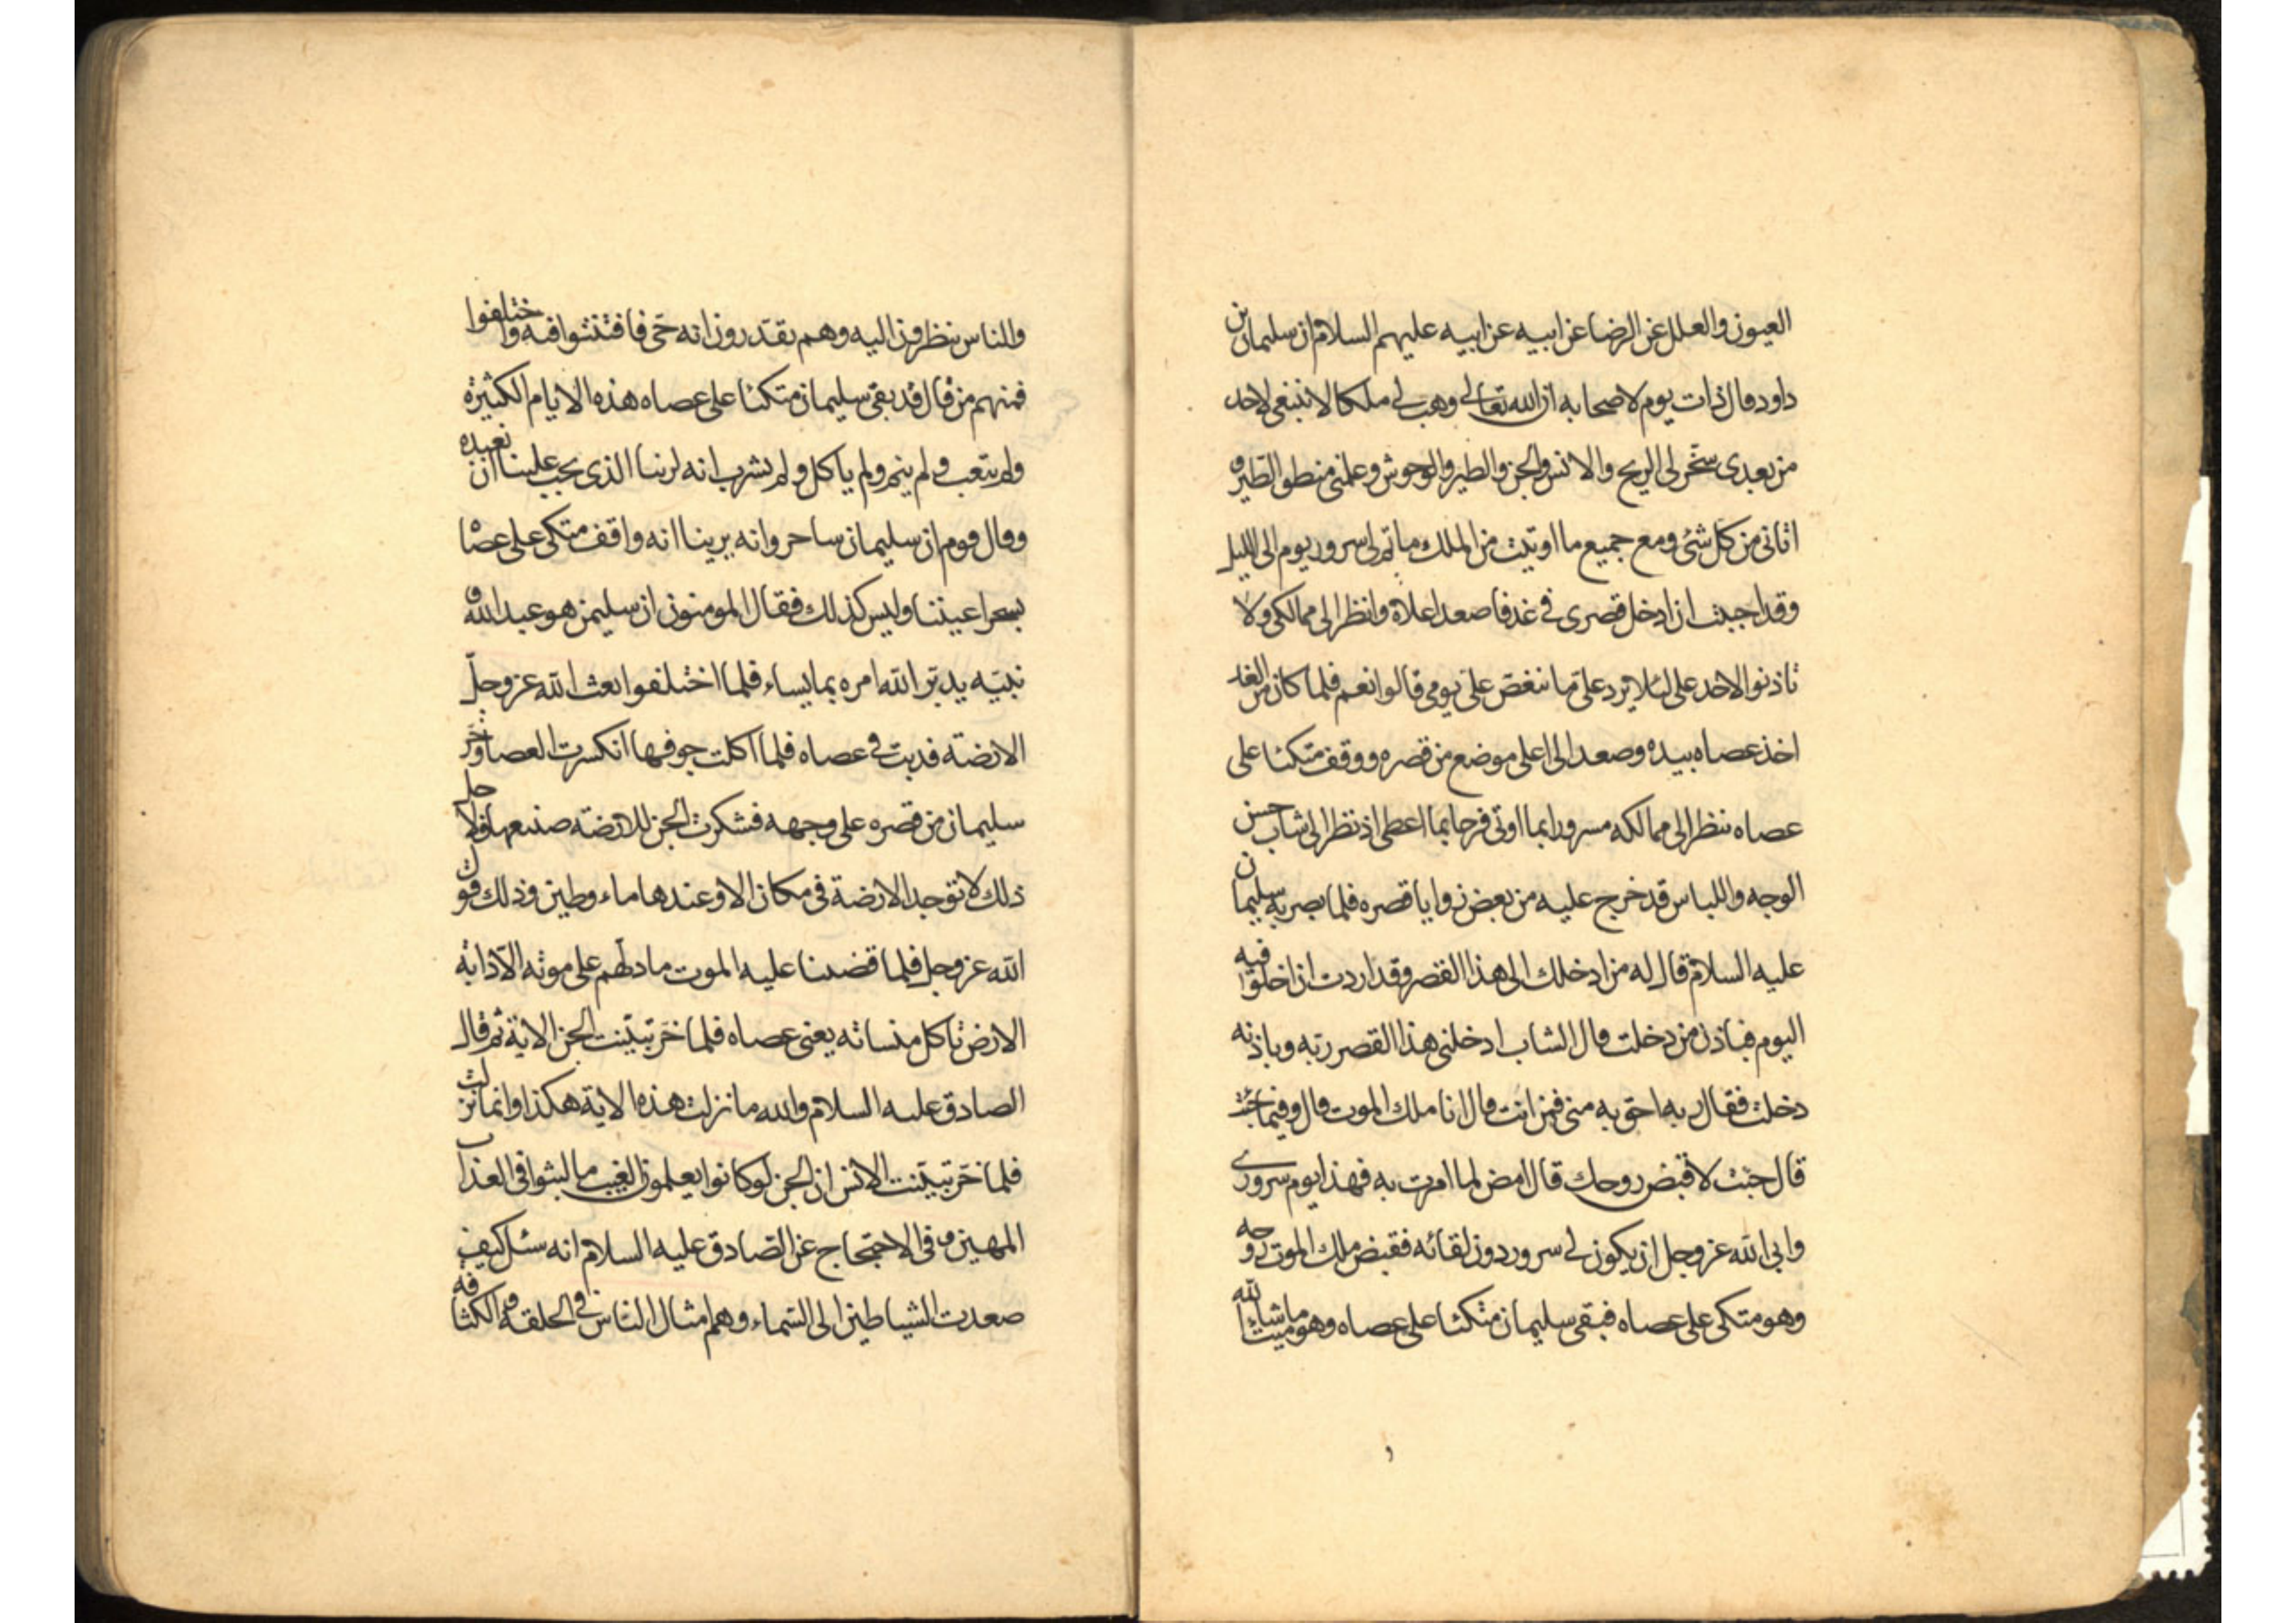 العيون والعلل عن الرضا عن ابيه عن ابيه عليهم السلام ان سليمان بن
داود قال ذات يوم لاصحابه ان الله تعالى وهب لي ملكا لا ينبغي لاحد
من بعدى سخر لى الريح والانس والجن والطير والوحوش وعلمنى منطق الطير و
اتانى من كل شئ ومع جميع ما اوتيت من الملك ما تم لى سرور يوم الى الليل
وقد احببت ان ادخل قصرى في غد فاصعد اعلاه وانظر الى ممالكى ولا
تاذنوا لاحد على لئلا يرد على ما ينغص على يومى قالوا نعم فلما كان من الغد
اخذ عصاه بيده وصعد الى اعلى موضع من قصره ووقف متكئا على
عصاه ينظر الى ممالكه مسرورا بما اوتى فرحا بما اعطى اذ نظر الى شاب حسن
الوجه واللباس قد خرج عليه من بعض زوايا قصره فلما بصر به سليمان
عليه السلام قال له من ادخلك الى هذا القصر وقد اردت ان اخلو فيه
اليوم فباذن من دخلت قال الشاب ادخلنى هذا القصر ربه وباذنه
دخلت فقال ربه احق به منى فمن انت قال انا ملك الموت قال وفيما جئت
قال جئت لاقبض روحك قال امض لما امرت به فهذا يوم سرورى
وابى الله عز وجل ان يكون لي سرور دون لقائه فقبض ملك الموت روحه
وهو متكى على عصاه فبقى سليمان متكئا على عصاه وهو ميت ما شاء الله
والناس ينظرون اليه وهم يقدرون انه حى فافتتنوا فيه واختلفوا
فمنهم من قال قد بقى سليمان متكئا على عصاه هذه الايام الكثيرة
ولم يتعب ولم ينم ولم ياكل ولم يشرب انه لربنا الذى يجب علينا ان نعبده
وقال قوم ان سليمان ساحر وانه يرينا انه واقف متكى على عصاه
يسحر اعيننا وليس كذلك فقال المومنون ان سليمن هو عبد الله و
نبيه يدبر الله امره بما يساء فلما اختلفوا بعث الله عز وجل
الارضة فدبت في عصاه فلما اكلت جوفها انكسرت العصا وخر
سليمان من قصره على وجهه فشكرت الجن للارضة صنيعها فلاجل
ذلك لا توجد الارضة فى مكان الا وعندها ماء وطين وذلك قول
الله عز وجل فلما قضينا عليه الموت ما دلهم على موته الا دابة
الارض تاكل منساته يعنى عصاه فلما خر تبينت الجن الاية ثم قال
الصادق عليه السلام والله ما نزلت هذه الاية هكذا وانما نزلت
فلما خر تبينت الانس ان الجن لو كانوا يعلمون الغيب ما لبثوا فى العذاب
المهين وفى الاحتجاج عن الصادق عليه السلام انه سئل كيف
صعدت الشياطين الى السماء وهم امثال الناس في الخلقة والكثافة